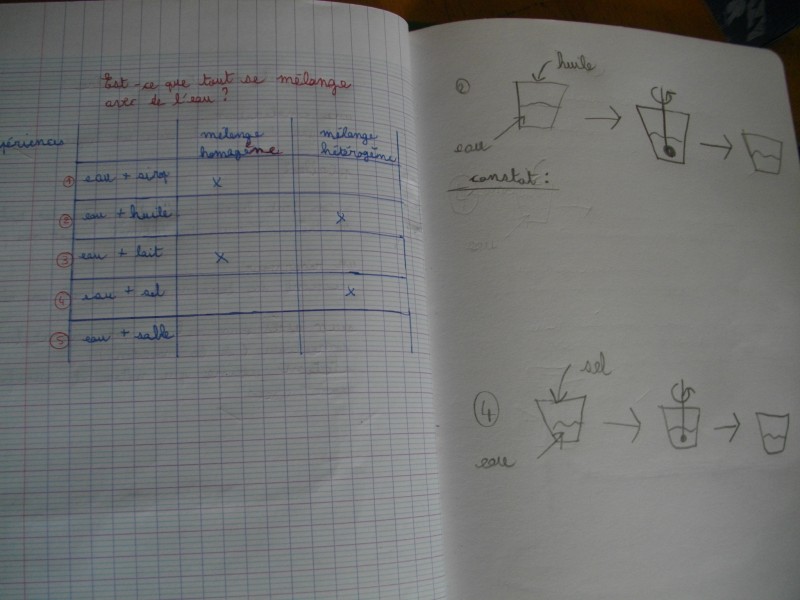 Est-ce que tout se mélange
avec de l'eau ?
mélange
homogène
mélange
hétérogène
① eau + sirop x
② eau + huile x
③ eau + lait x
④ eau + sel x
⑤ eau + sable
② huile
eau
constat :
④ sel
eau